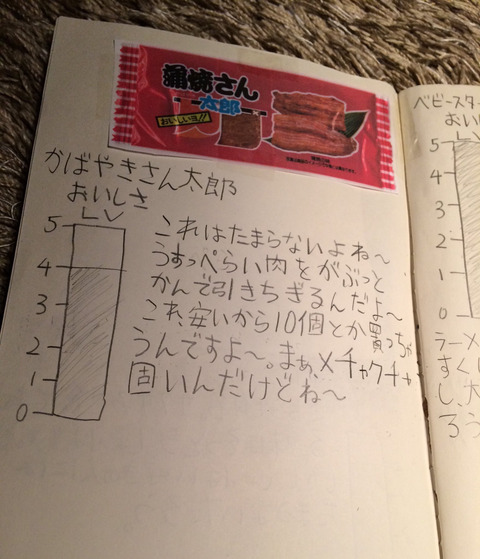 蒲焼さん
太郎
おいしいヨ!!
かばやきさん太郎
おいしさ
LV
5
4
3
2
1
0
これはたまらないよね〜
うすっぺらい肉をがぶっと
かんで引きちぎるんだよ〜
これ、安いから10個とか買っちゃ
うんですよ〜。まぁ、メチャクチャ
固いんだけどね〜
ベビースタ
おい
LV
5
4
3
2
1
0
ラーメ
すくし
し、大
ろう